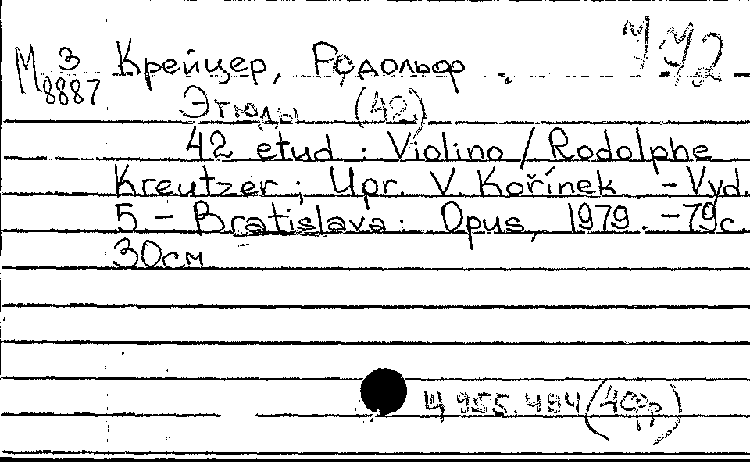 М 3 Крейцер, Родольф
8887 Этюды (42)
42 etud : Violino / Rodolphe
Kreutzer ; Upr. V. Kořínek - Vyd.
5 - Bratislava : Opus, 1979. - 79с.
30см